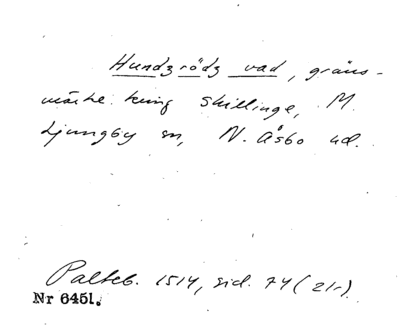 Hundzrödz vad, gräns-
märke kring Skillinge, M.
Ljungby sn, N. Åsbo hd.
Palteb. 1514, sid. 74 (21r).
Nr 6451.